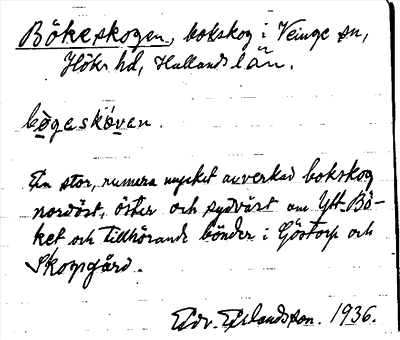 Bökeskogen, bokskog i Veinge sn,
Höks hd, Hallands län.
bøgeskøven.
En stor, numera mycket avverkad bokskog
nordöst, öster och sydväst om Ytt. Bö-
ket och tillhörande bönder i Göstorp och
Skogsgård.
Edv. Erlandsson. 1936.